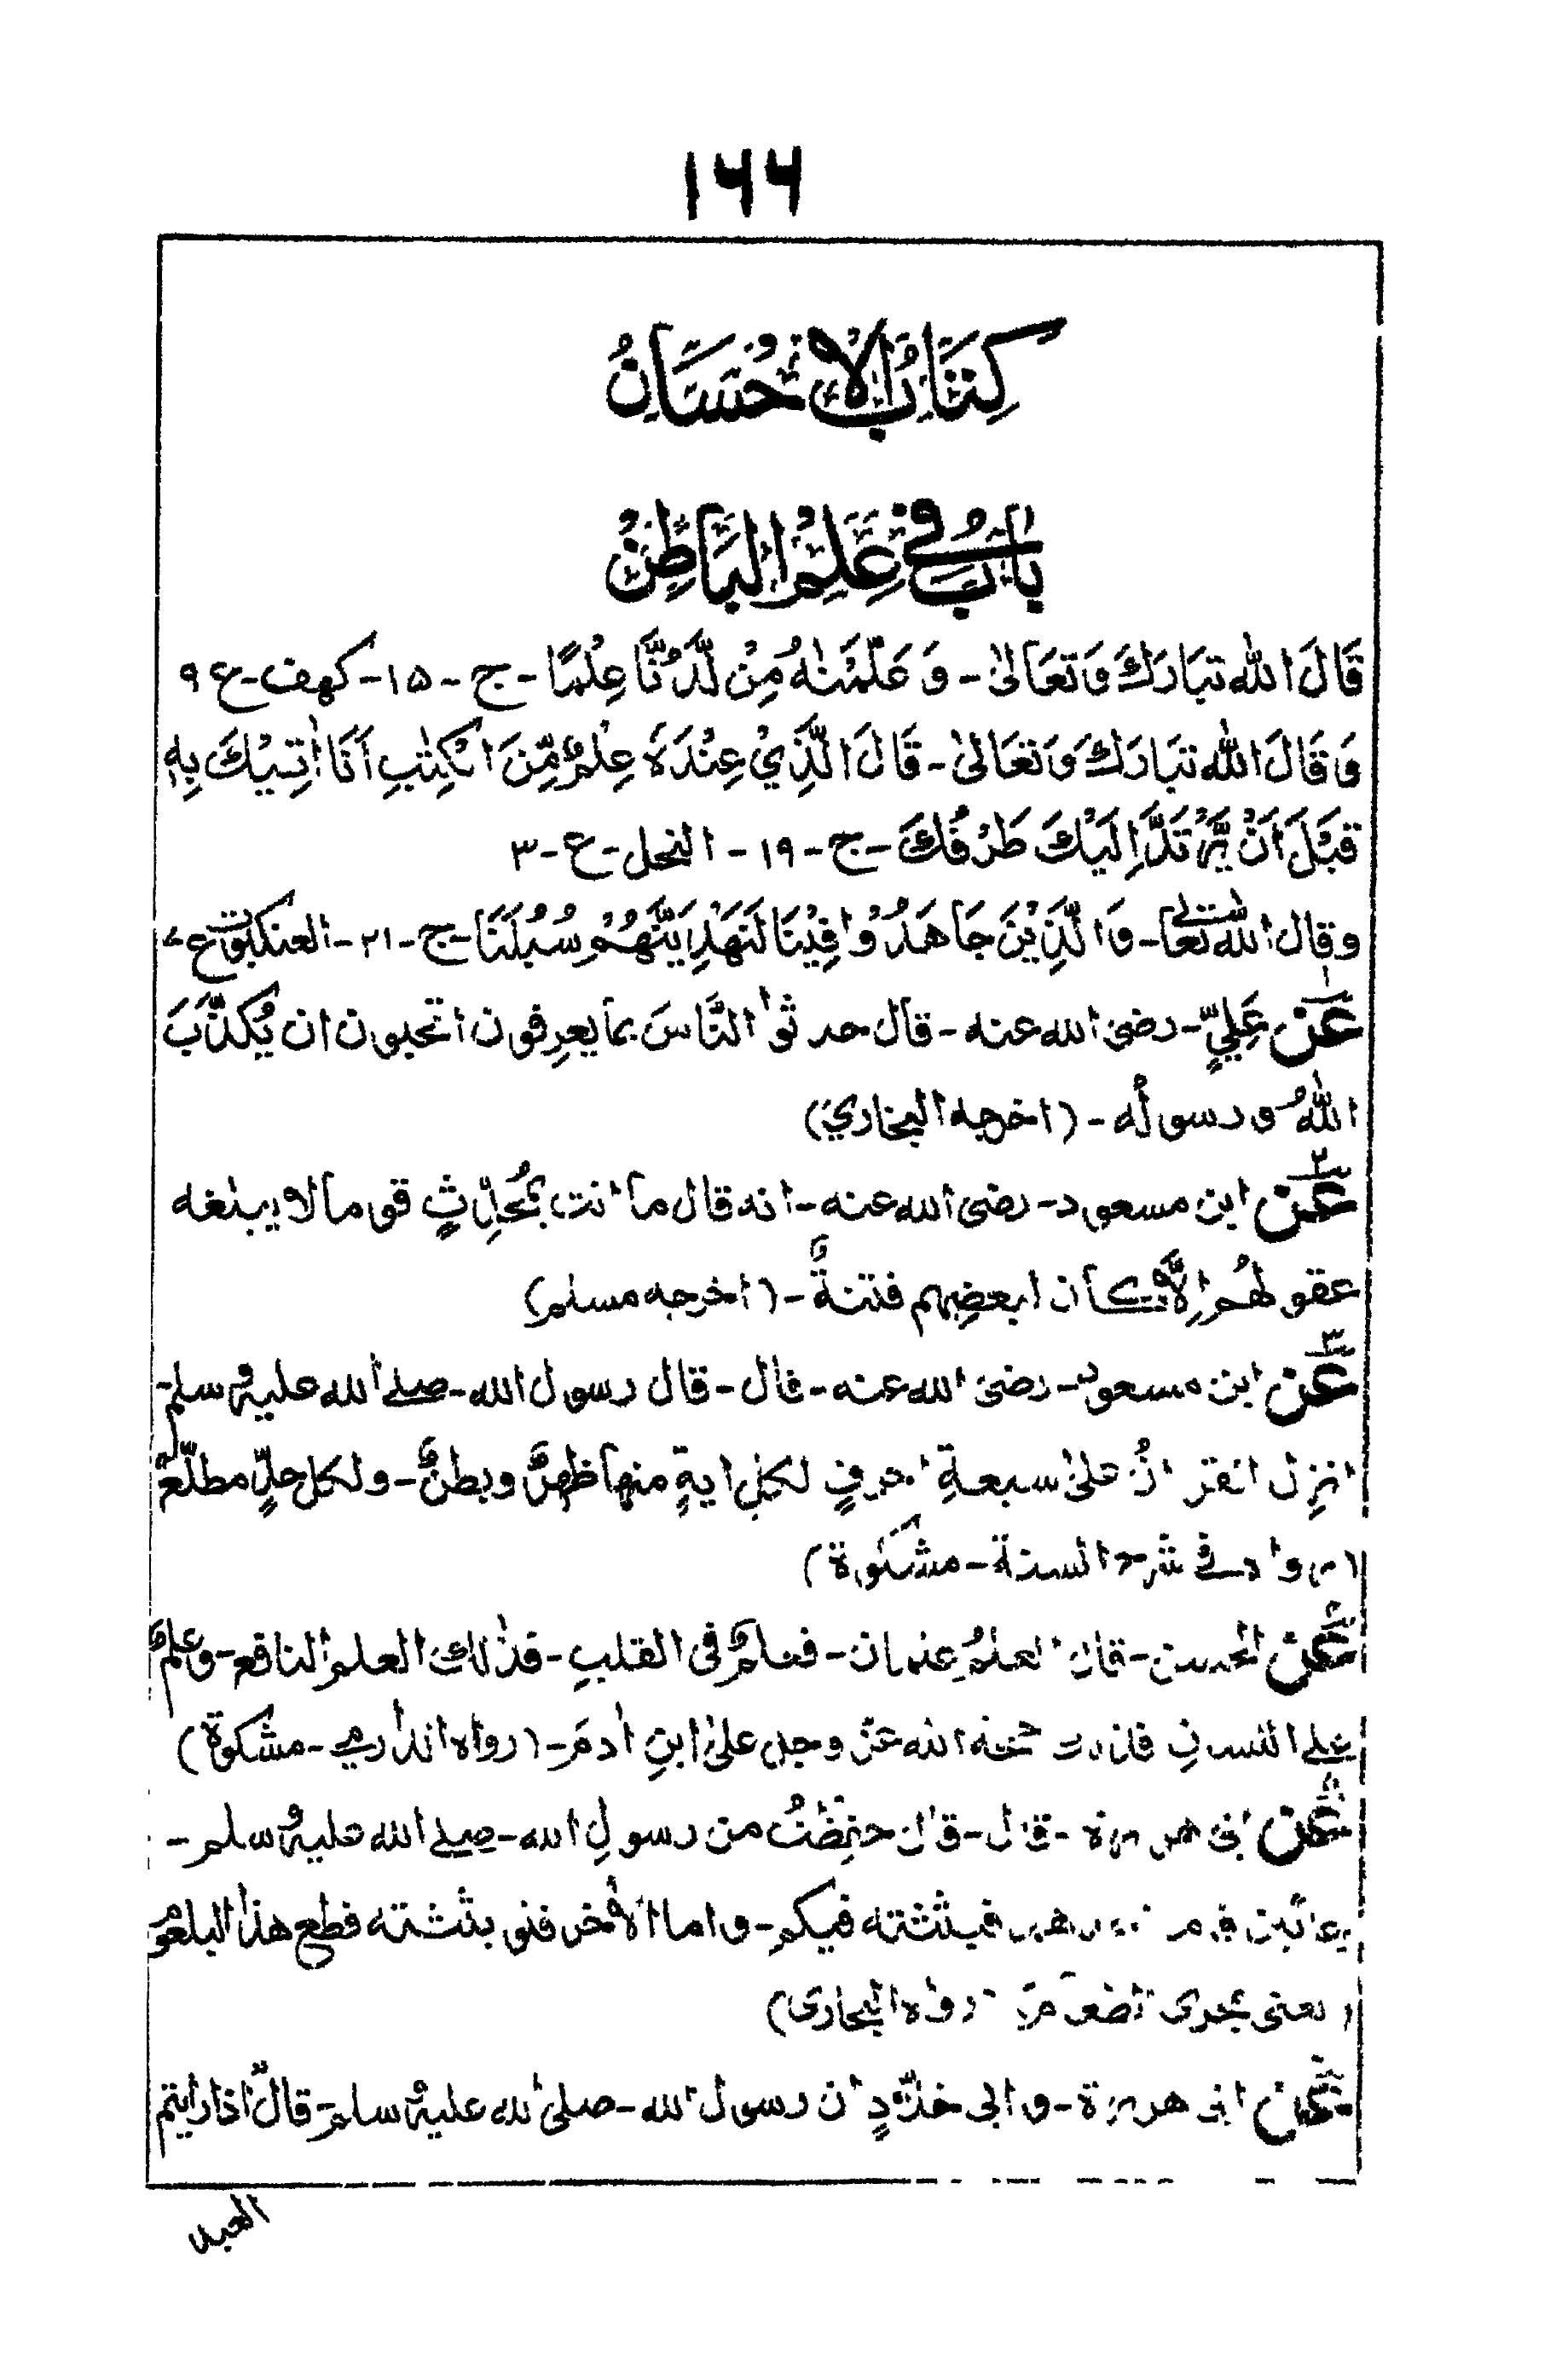 ۱۶۶
كِتَابُ الْاِحْسَانُ
بَابٌ فِي عِلْمِ الْبَاطِنْ
قَالَ اللّٰه تَبَارَكَ وَتَعَالىٰ - وَ عَلَّمْنٰهُ مِنْ لَّدُنَّا عِلْمًا - ج - ١٥ - كهف - ع ٩
وَقَالَ اللّٰه تَبَارَكَ وَتَعَالىٰ - قَالَ الَّذِيْ عِنْدَهٗ عِلْمٌ مِّنَ الْكِتٰبِ اَنَا اٰتِيْكَ بِهٖ
قَبْلَ اَنْ يَّرْتَدَّ اِلَيْكَ طَرْفُكَ - ج - ١٩ - النحل - ع - ٣
وقال اللّٰه تعالىٰ - وَالَّذِيْنَ جَاهَدُوْا فِيْنَا لَنَهْدِيَنَّهُمْ سُبُلَنَا - ج - ٢١ - العنكبوت ع ٧
١ عَنْ عَلِيٍّ - رضى الله عنه - قال حدثوا النَّاسَ بما يعرِفون اتحبون ان يُكذَّبَ
اللّٰهُ و رسولُه - (اخرجه البخاري)
٢ عَن ابن مسعود - رضى الله عنه - انه قال ما انت بمُحَدِّثٍ قوما لا يبلغه
عقولهُم اِلَّا كان لبعضِهم فتنةً - (اخرجه مسلم)
٣ عَن ابن مسعود - رضى الله عنه - قال - قال رسول الله - صلى الله عليه وسلم -
انزِل القراٰنُ علىٰ سبعةِ احرفٍ لكلِ ايةٍ منها ظهرٌ و بطنٌ - و لكل حدٍّ مطلّعٌ
(رواه فى شرح السنة - مشكوة)
عَن الحسن - قال العلمُ عِلمان - فعلمٌ فى القلبِ - فذٰلك العلم النافع - وعلمٌ
على اللسانِ فذاك حجة الله عزّ وجل علىٰ ابنِ اٰدمَ - (رواه الدارمي - مشكوة)
٥ عَن ابى هريرة - قال - قال حفِظتُ من رسولِ الله - صلى الله عليه وسلم -
وعائين فبثثته فيكم - واما الاٰخر فلو بثثته قطع هذا البلعوم
(يعنى مجرى الطعام - رواه البخارى)
عَن ابى هريرة - و ابى خلّادٍ ان رسول الله - صلى الله عليه وسلم - قال اذا رايتم
العبد